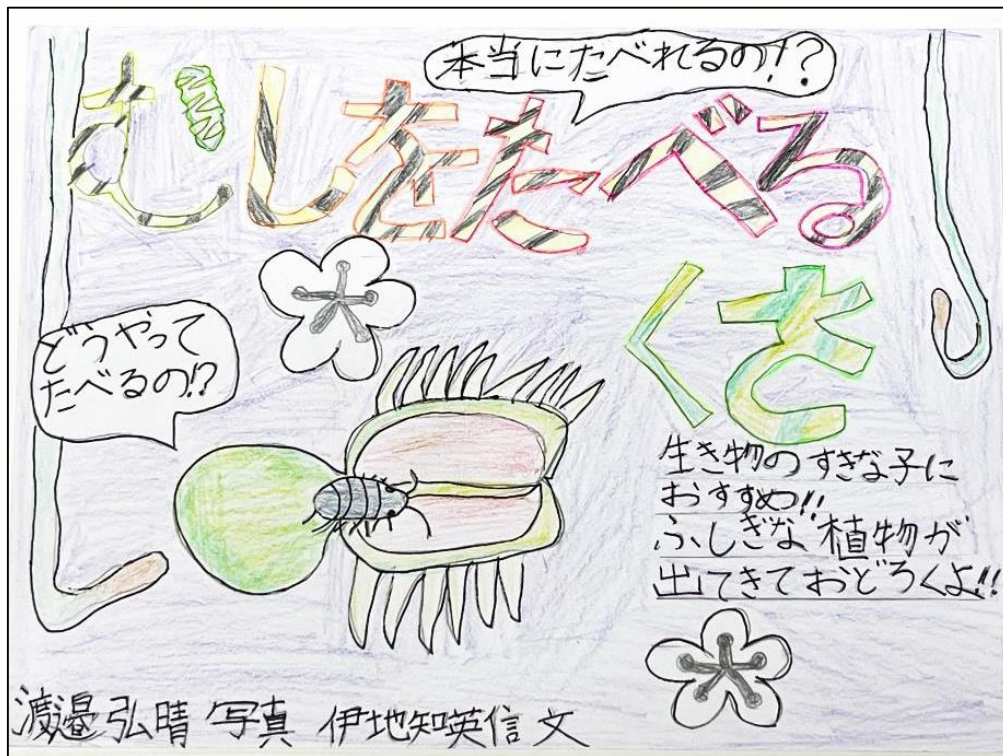 本当にたべれるの!?
むしをたべる
くさ
どうやって
たべるの!?
生き物のすきな子に
おすすめ!!
ふしぎな植物が
出てきておどろくよ!!
渡邉弘晴 写真 伊地知英信 文